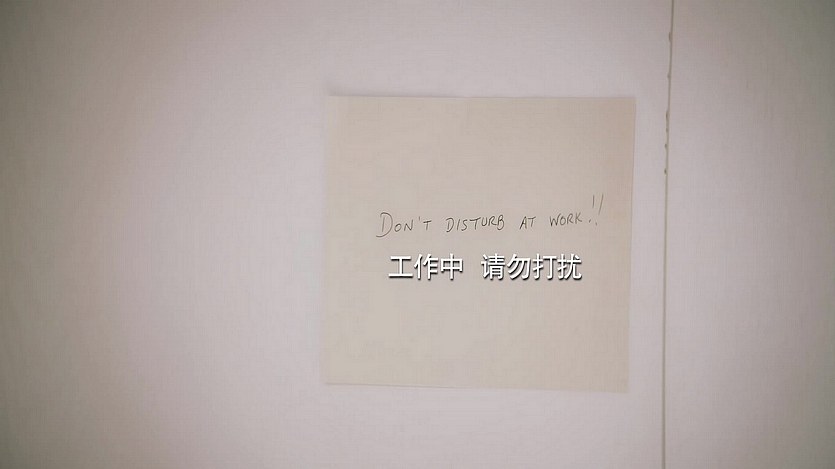 DON'T DISTURB AT WORK!!
工作中 请勿打扰